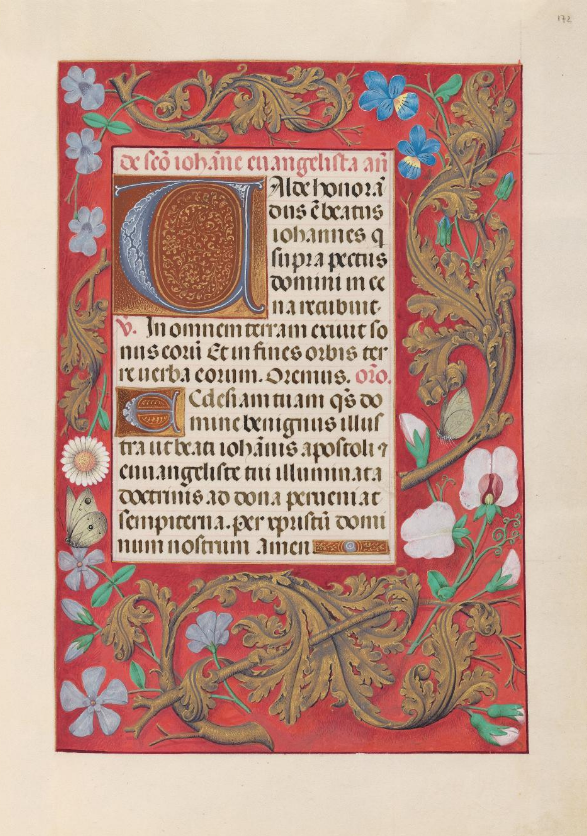 172
de scō iohāne euangelista añ
Valde honorā
dus ē beatus
iohannes q
supra pectus
domini in ce
na recubuit
V. In omnem terram exiuit so
nus eorū Et in fines orbis ter
re uerba eorum. Oremus. orō.
Ecclesiam tuam qs do
mine benignus illus
tra ut beati iohānis apostoli ⁊
euuangeliste tui illuminata
doctrinis ad dona perueniat
sempiterna. per xpristū domi
num nostrum Amen